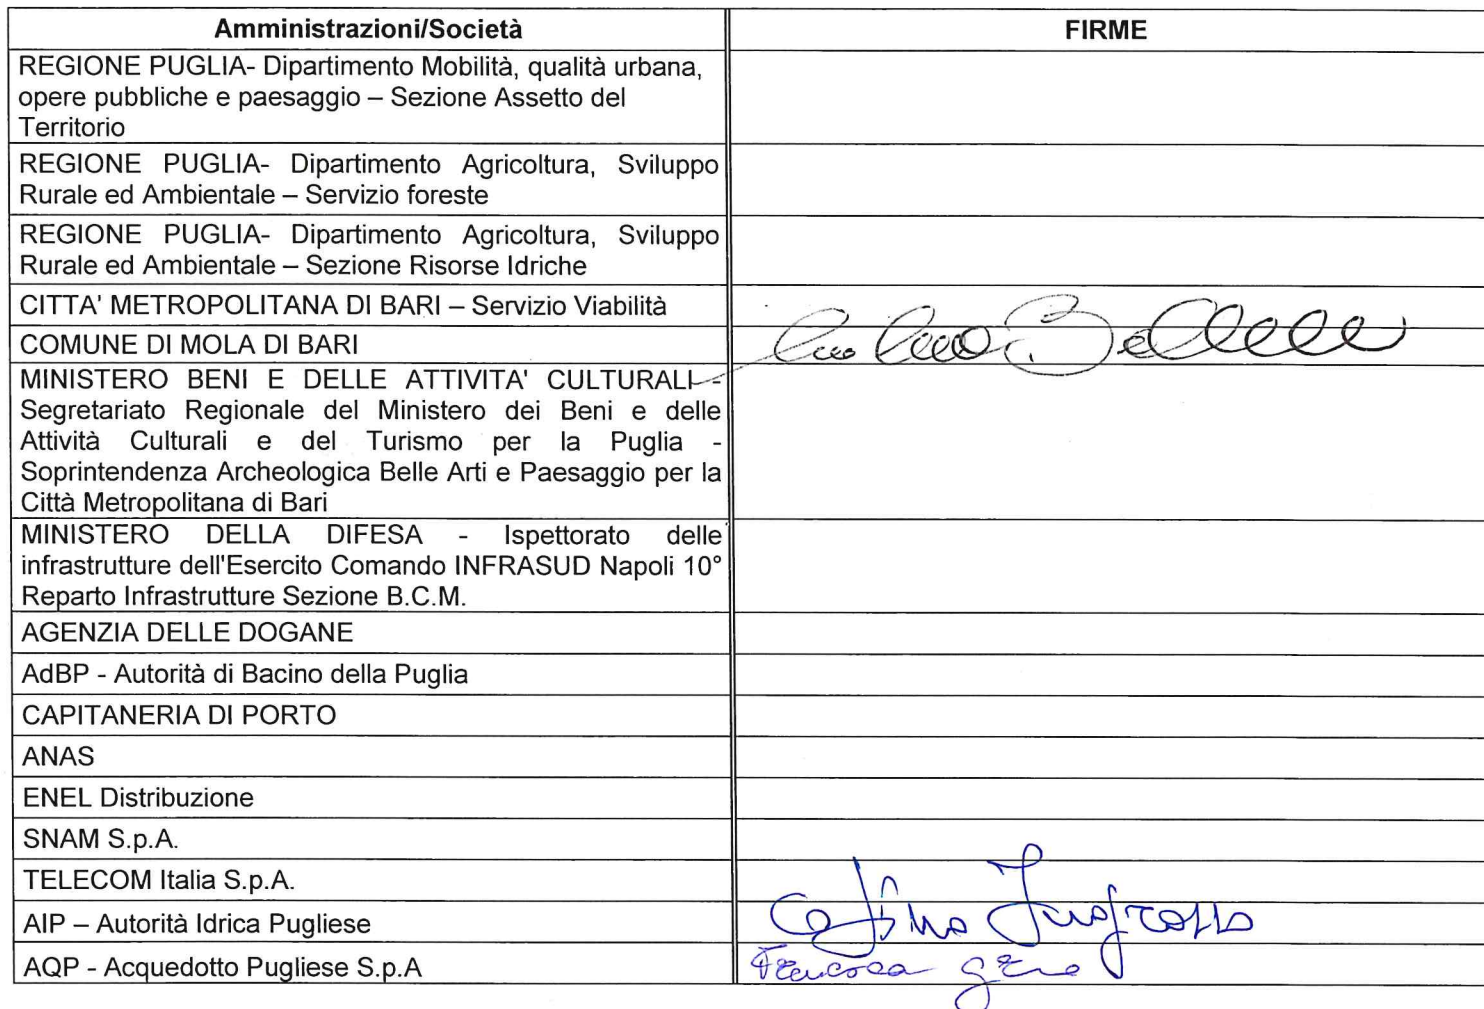 Amministrazioni/Società FIRME
REGIONE PUGLIA- Dipartimento Mobilità, qualità urbana,
opere pubbliche e paesaggio – Sezione Assetto del
Territorio
REGIONE PUGLIA- Dipartimento Agricoltura, Sviluppo
Rurale ed Ambientale – Servizio foreste
REGIONE PUGLIA- Dipartimento Agricoltura, Sviluppo
Rurale ed Ambientale – Sezione Risorse Idriche
CITTA' METROPOLITANA DI BARI – Servizio Viabilità
COMUNE DI MOLA DI BARI
MINISTERO BENI E DELLE ATTIVITA' CULTURALI -
Segretariato Regionale del Ministero dei Beni e delle
Attività Culturali e del Turismo per la Puglia -
Soprintendenza Archeologica Belle Arti e Paesaggio per la
Città Metropolitana di Bari
MINISTERO DELLA DIFESA - Ispettorato delle
infrastrutture dell'Esercito Comando INFRASUD Napoli 10°
Reparto Infrastrutture Sezione B.C.M.
AGENZIA DELLE DOGANE
AdBP - Autorità di Bacino della Puglia
CAPITANERIA DI PORTO
ANAS
ENEL Distribuzione
SNAM S.p.A.
TELECOM Italia S.p.A.
AIP – Autorità Idrica Pugliese
AQP - Acquedotto Pugliese S.p.A